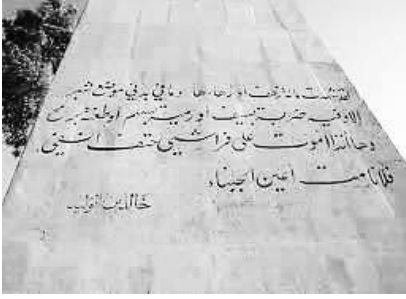 لقد شهدت مائة زحف أو زهاءها وما في بدني موضع شبر
إلا وفيه ضربة بسيف أو رمية بسهم أو طعنة برمح
وها أنذا أموت على فراشي حتف أنفي
فلا نامت أعين الجبناء
خالد بن الوليد